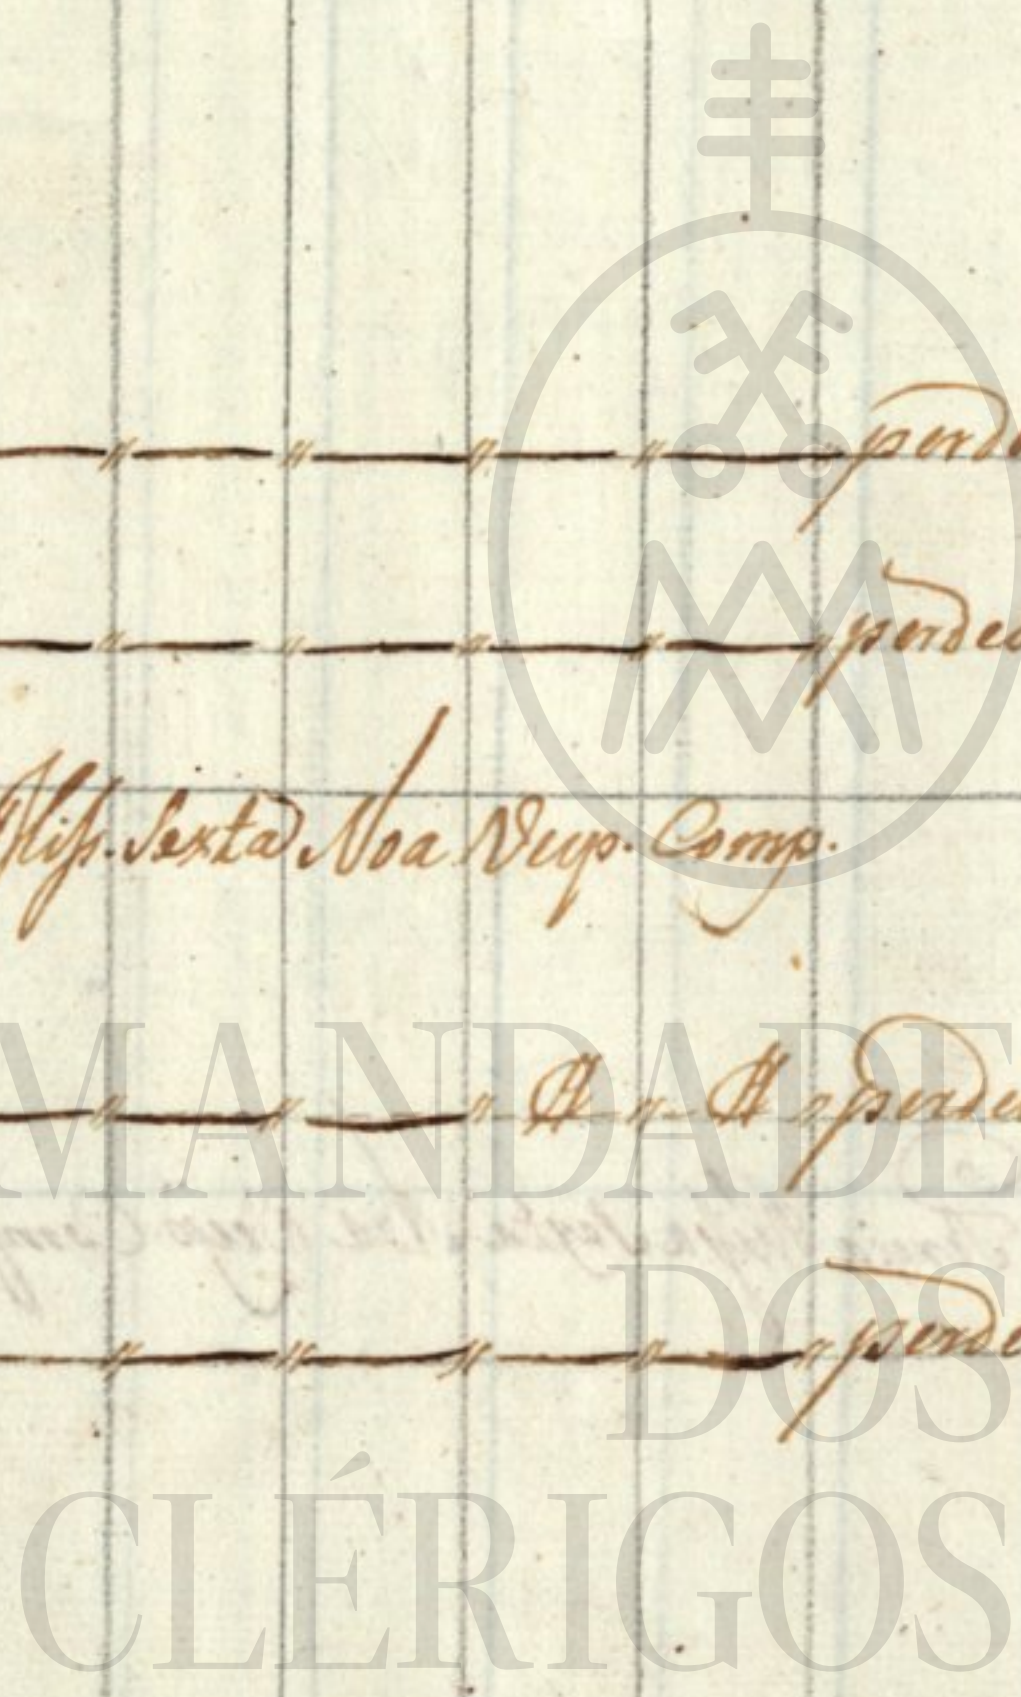 perde
perdeo
Miss. Sexta Noa Vesp. Comp.
A A perdeu
perde
MANDADE
DOS
CLÉRIGOS